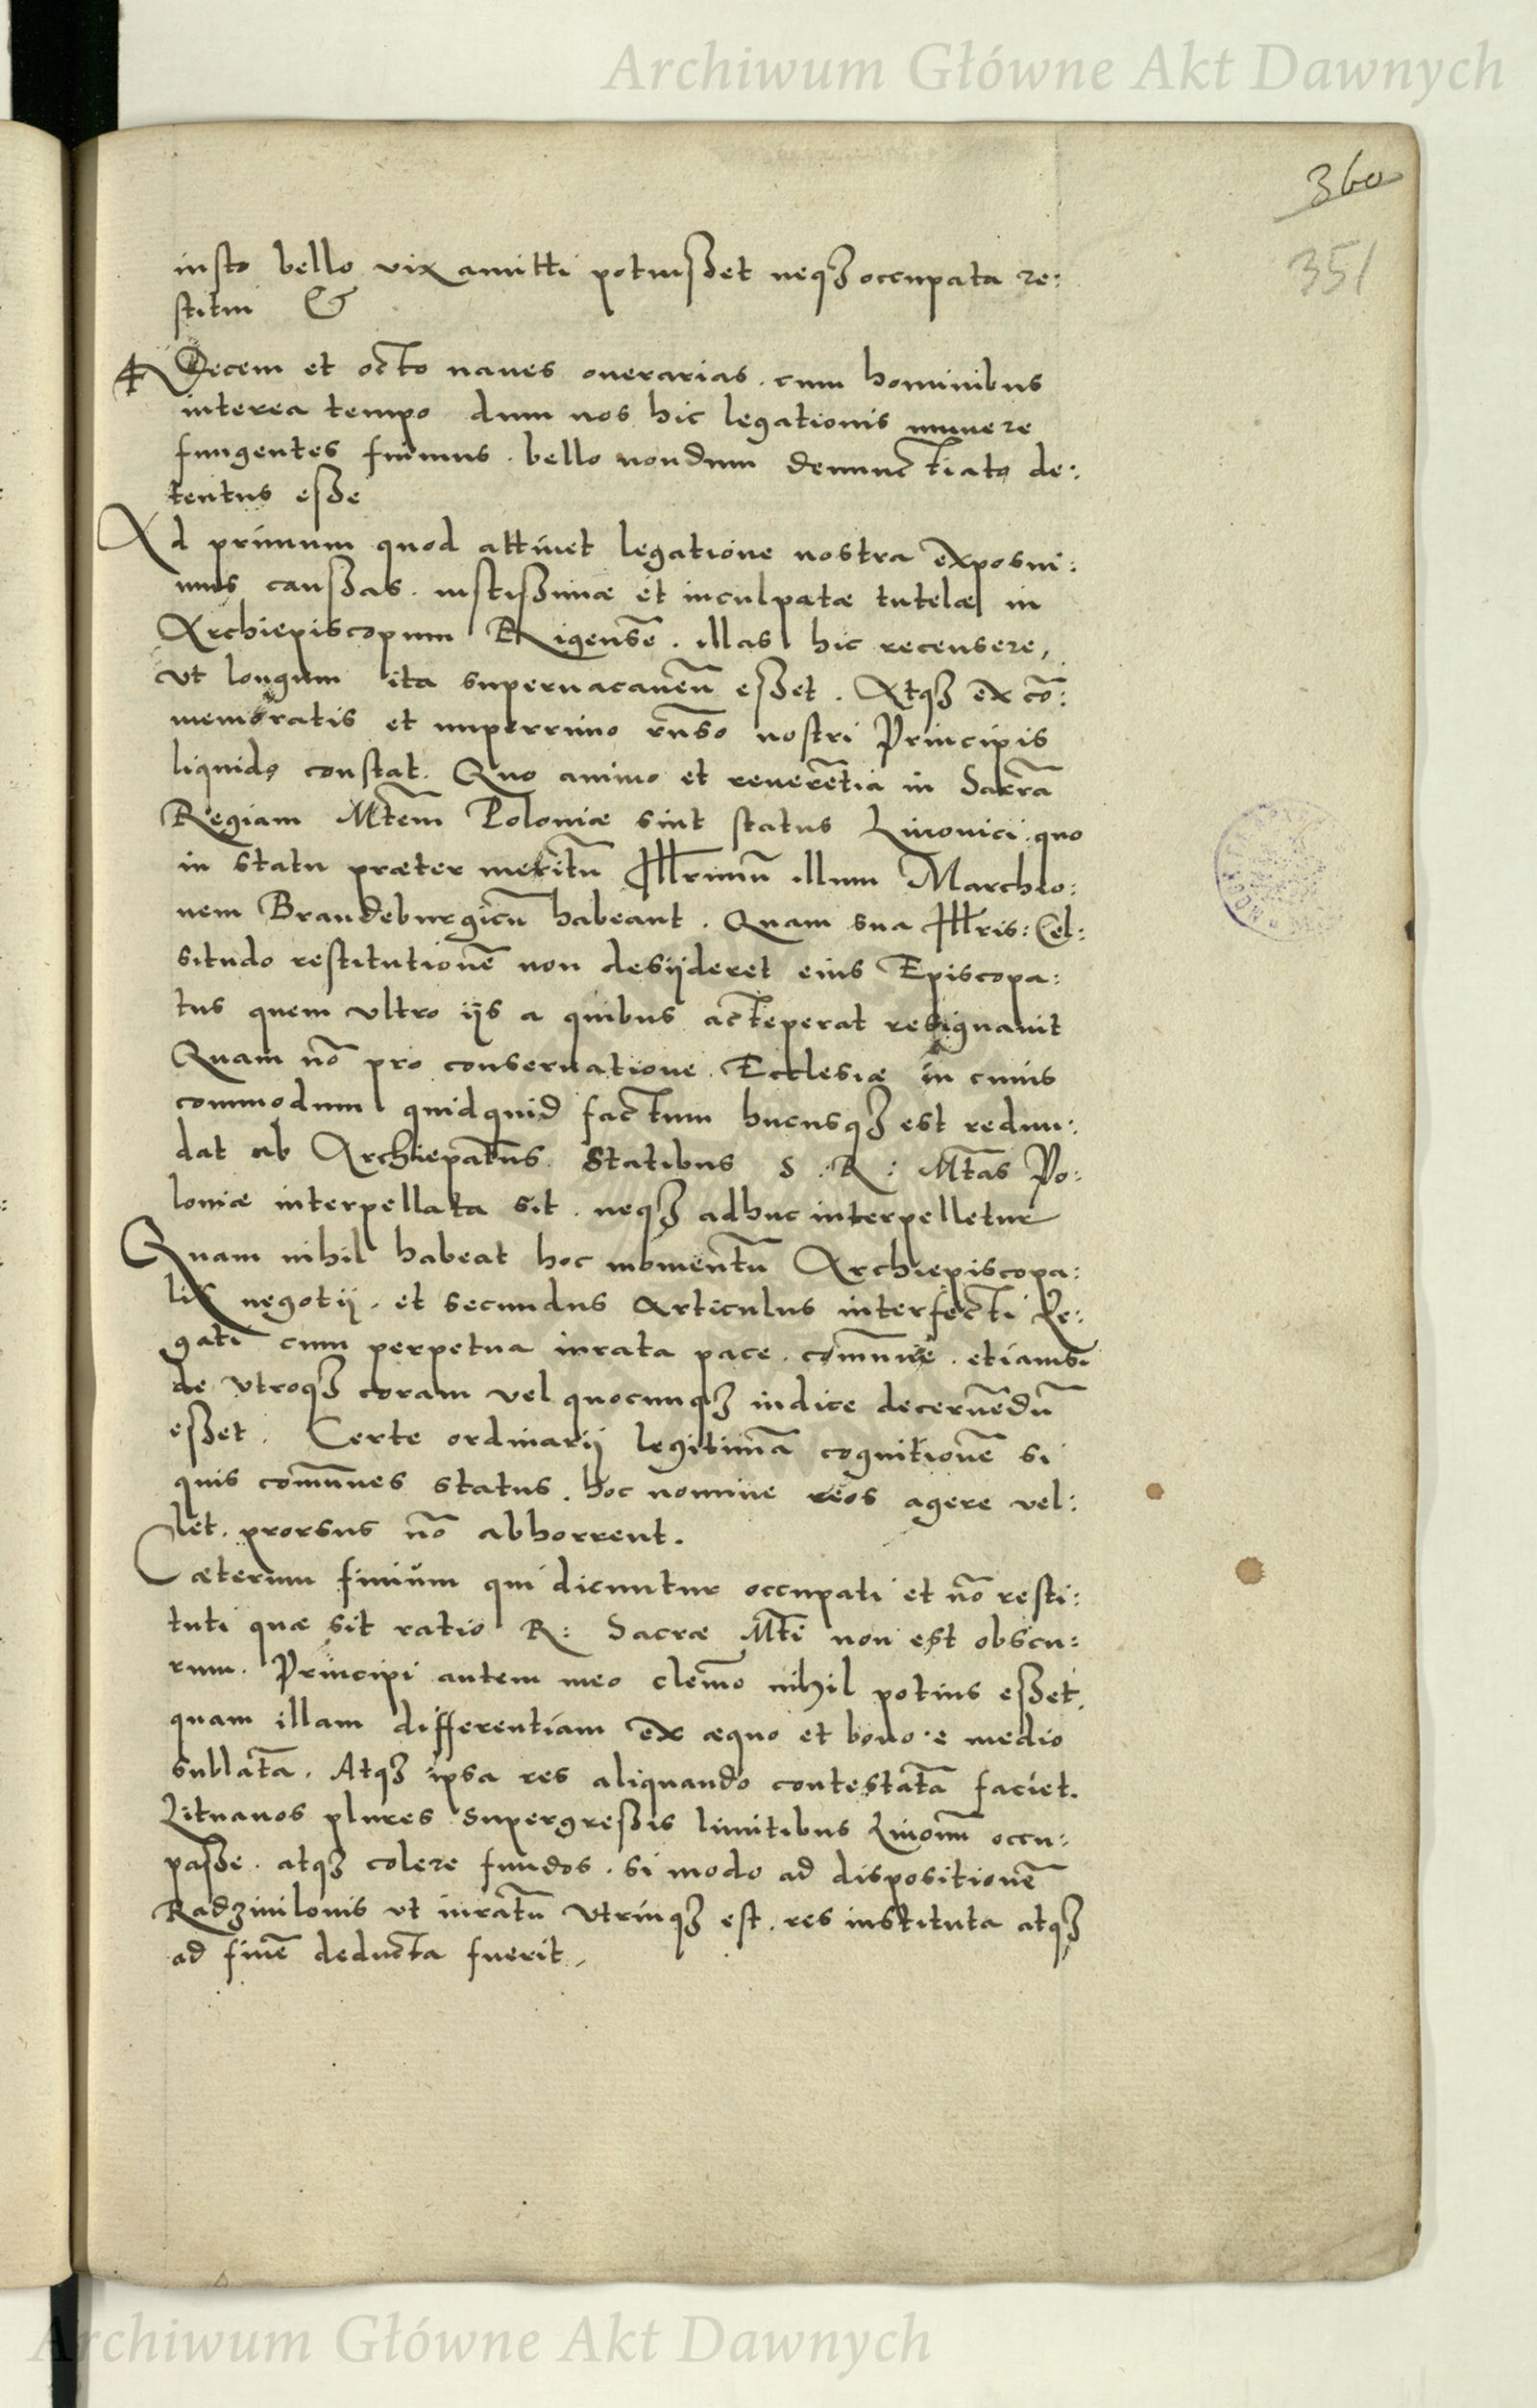 Archiwum Główne Akt Dawnych
360
351
iusto bello vix amitti potuisset neqȝ occupata re:
stitui &
4 Decem et octo naues onerarias. cum hominibus
interea tempo dum nos hic legationis munere
fungentes fuimus. bello nondum denunctiato de:
tentus esse
Ad primum quod attinet legatione nostra exposui:
mus caussas. iustissimæ et inculpatæ tutelæ in
Archiepiscopum Rigensē. illas hic recensere,
vt longum ita superuacaneū esset. Atqȝ ex cō:
memoratis et nuperrimo rn̄so nostri Principis
liquido constat. Quo animo et reuerētia in Sacrā
Regiam Mtēm Poloniæ sint status Liuonici. quo
in statu præter meritū Illrimū illum Marchio:
nem Brandeburgicū habeant. Quam sua Illris: Cel:
situdo restitutionē non desijderet eius Episcopa:
tus quem vltro ijs a quibus acteperat resignauit
Quam nō pro conseruatione. Ecclesiæ in cuius
commodum quidquid factum hucusqȝ est redun:
dat ab Archiepatus. Statibus S. R: Mtās Po:
loniæ interpellata sit. neqȝ adhuc interpelletur
Quam nihil habeat hoc momentū Archiepiscopa:
lis negotij. et secundus Articulus interfecti Le:
gati cum perpetua iurata pace. comūne. etiamsi
de vtroqȝ coram vel quocunqȝ iudice decernēdū
esset. Certe ordinarij legitimā cognitionē si
quis comūnes status. hoc nomine reos agere vel:
let. prorsus nō abhorrent.
Cæterum finium qui dicuntur occupati et nō resti:
tuti quæ sit ratio R: Sacræ Mti non est obscu:
rum. Principi autem meo clemō nihil potius esset,
quam illam differentiam ex æquo et bono. e medio
sublatā. Atqȝ ipsa res aliquando contestatā faciet.
Lituanos plures supergressis limitibus Liuonū occu:
passe. atqȝ colere fundos. si modo ad dispositionē
Radziuilonis vt iuratū vtrinqȝ est. res instituta atqȝ
ad finē deducta fuerit,
Archiwum Główne Akt Dawnych